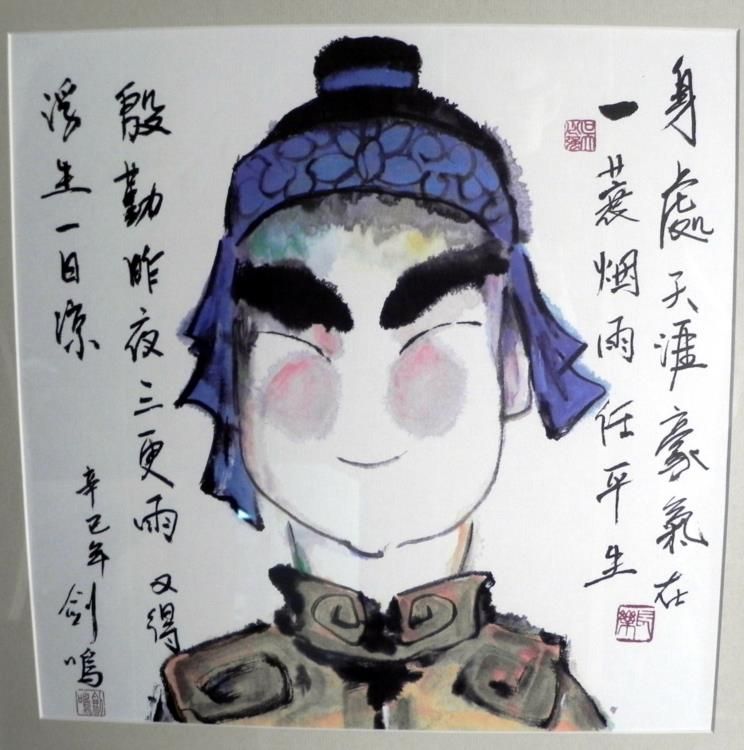 身處天涯豪氣在
一蓑烟雨任平生
殷勤昨夜三更雨又得
浮生一日涼
辛巳年劍鳴